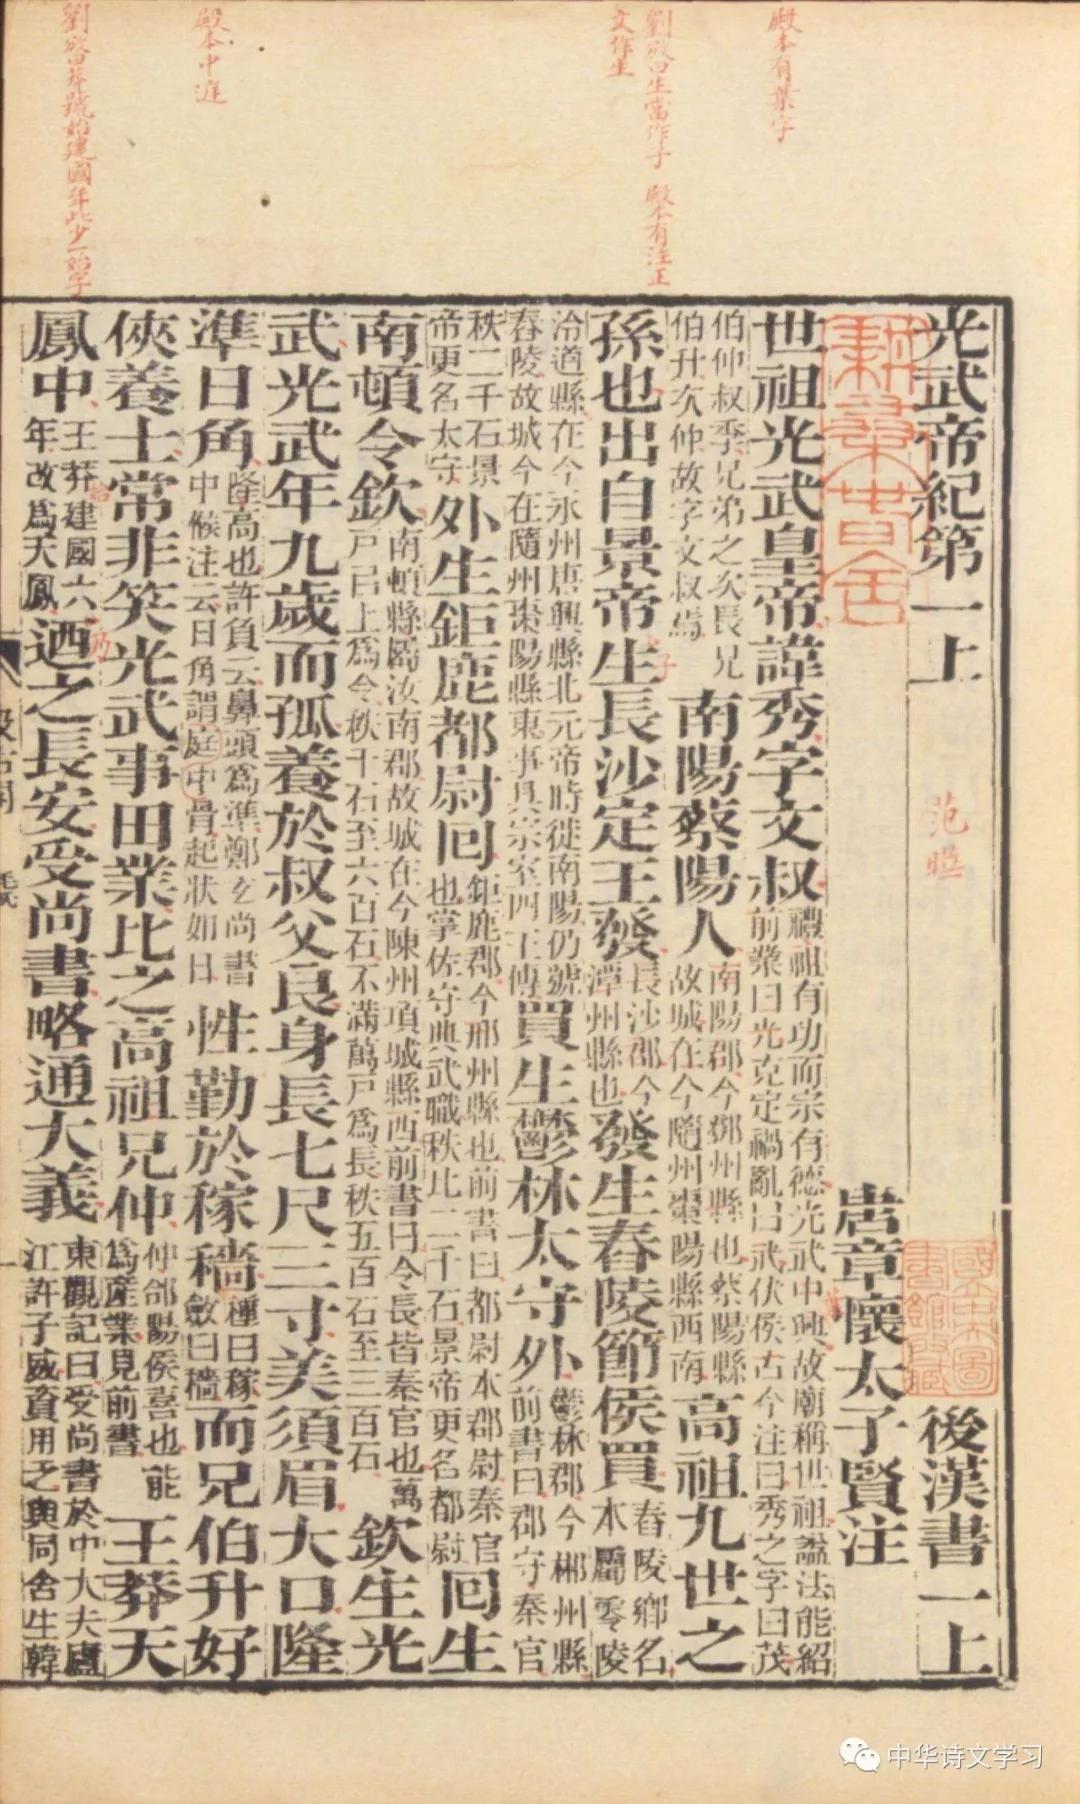 殿本有葉字
劉攽曰生當作子 殿本有注正
文作生
殿本中庭
劉攽曰莽號始建國年此少一始字
光武帝紀第一上 後漢書一上
范曄
唐章懷太子賢注
世祖光武皇帝諱秀字文叔 禮祖有功而宗有德光武中興故廟稱世祖謚法能紹前業曰光克定禍亂曰武伏侯古今注曰秀之字曰茂
伯仲叔季兄弟之次長兄伯升次仲故字文叔焉 南陽蔡陽人 南陽郡今鄧州縣也蔡陽縣故城在今隨州棗陽縣西南 高祖九世之
孫也出自景帝生長沙定王發 長沙郡今潭州縣也 發生舂陵節侯買 舂陵鄉名本屬零陵
泠道縣在今永州唐興縣北元帝時徙南陽仍號舂陵故城今在隨州棗陽縣東事具宗室四王傳 買生鬱林太守外 鬱林郡今郴州縣前書曰郡守秦官
秩二千石景帝更名太守 外生鉅鹿都尉回 鉅鹿郡今邢州縣也前書曰都尉本郡尉秦官也掌佐守典武職秩比二千石景帝更名都尉 回生
南頓令欽 南頓縣屬汝南郡故城在今陳州項城縣西前書曰令長皆秦官也萬戶已上爲令秩千石至六百石不滿萬戶爲長秩五百石至三百石 欽生光
武光武年九歲而孤養於叔父良身長七尺三寸美須眉大口隆
準日角 隆高也許負云鼻頭爲準鄭玄尚書中候注云日角謂庭中骨起狀如日 性勤於稼穡 種曰稼斂曰穡 而兄伯升好
俠養士常非笑光武事田業比之高祖兄仲 仲郃陽侯喜也能爲產業見前書 王莽天
鳳中 王莽建國六年改爲天鳳 迺之長安受尚書略通大義 東觀記曰受尚書於中大夫廬江許子威資用乏與同舍生韓
國立中央圖書館收藏
中华诗文学习